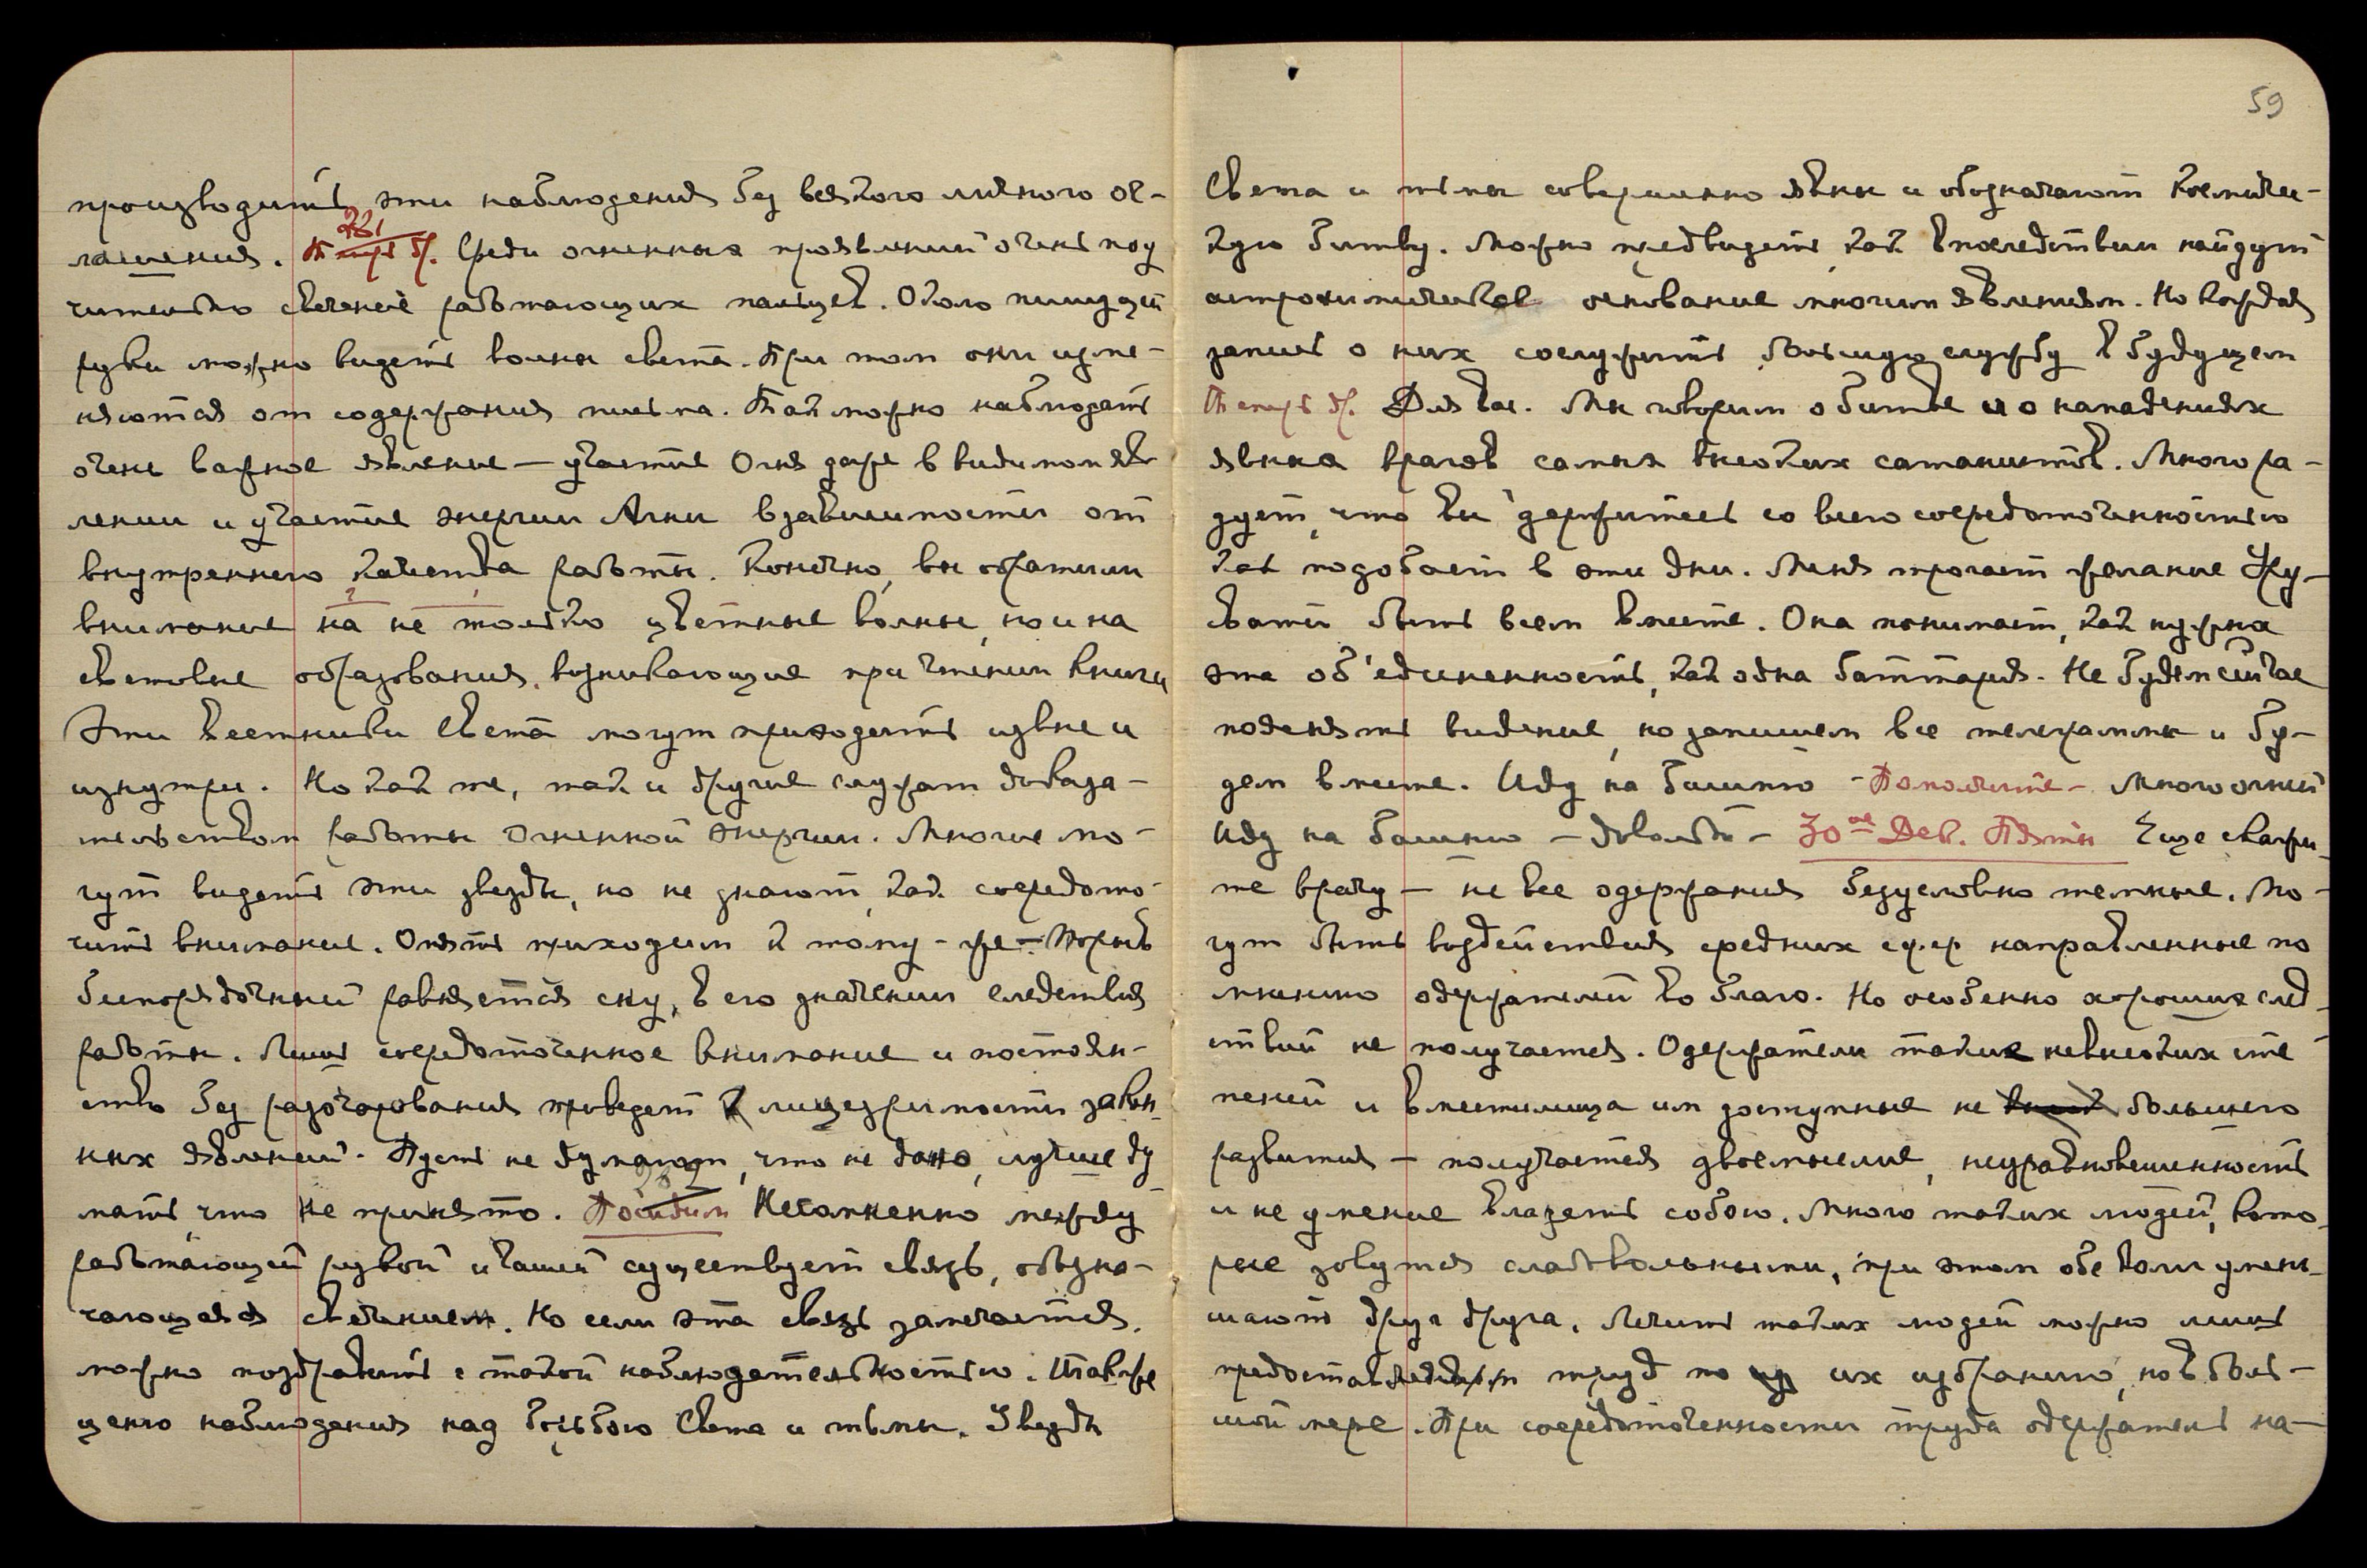 производить эти наблюдения без всякого личного ог-
лашения. 281 Теперь др. Среди огненных проявлений очень поу
чительно свечение работающих пальцев. Около пишущей
руки можно видеть волны света. При том они изме-
няются от содержания письма. Так можно наблюдать
очень важное явление — участие Огня даже в видимом яв
лении и участие энергии Агни в зависимости от
внутреннего качества работы. Конечно, вы обратили
внимание на не только цветные волны, но и на
световые образования, возникающие при чтении книги
Эти вестники Света могут приходить извне и
изнутри. Но как те, так и другие служат доказа-
тельством работы огненной энергии. Многие мо-
гут видеть эти звезды, но не знают, как сосредото-
чить внимание. Опять приходим к тому-же — Порыв
беспорядочный равняется сну, в его значении следствия
работы. Лишь сосредоточенное внимание и постоян-
ство без разочарования приведет к лицезримости законн
ных явлений. Пусть не думают, что не дано, лучше ду
мать, что не принято. 282 Посидим Несомненно между
работающей рукой и чашей существует связь, обозна-
чающаяся свечением. Но если эта связь замечается,
можно поздравить с такой наблюдательностью. Также
ценно наблюдения над борьбою Света и тьмы. Звезды
59
Света и тьмы совершенно явны и обозначают Космичес-
кую битву. Можно предвидеть, как впоследствии найдут
астрохимическое основание многим явлениям. Но каждая
запись о них сослужит большую службу в будущем
Теперь др. Для вас. Мы говорим о битве и о нападениях
явных врагов самых высоких сатанистов. Много ра-
дует, что вы держитесь со всею сосредоточенностью
как подобает в эти дни. Меня трогает желание Ур-
свати быть всем вместе. Она понимает, как нужна
эта об'единенность, как одна баттарея. Не будем сейчас
пояснять видение, но запишем все телеграммы и бу-
дем вместе. Иду на башню - Помолчите - Многоочий
Иду на башню — довольно — 30ое Дек. Пятн Еще скажи-
те врачу — не все одержания безусловно темные. Мо-
гут быть воздействия средних сфер направленные по
мнению одержателей ко благо. Но особенно хороших след-
ствий не получается. Одержатели таких невысоких сте
пеней и вместилища им доступные не большего
развития — получается двоемыслие, неуравновешенность
и не умение владеть собою. Много таких людей, кото-
рые зовутся слабовольными, при этом обе воли умень-
шают друг друга. Лечить таких людей можно лишь
труд по их избранию, но в боль-
шой мере. При сосредоточенности труда одержатель на-